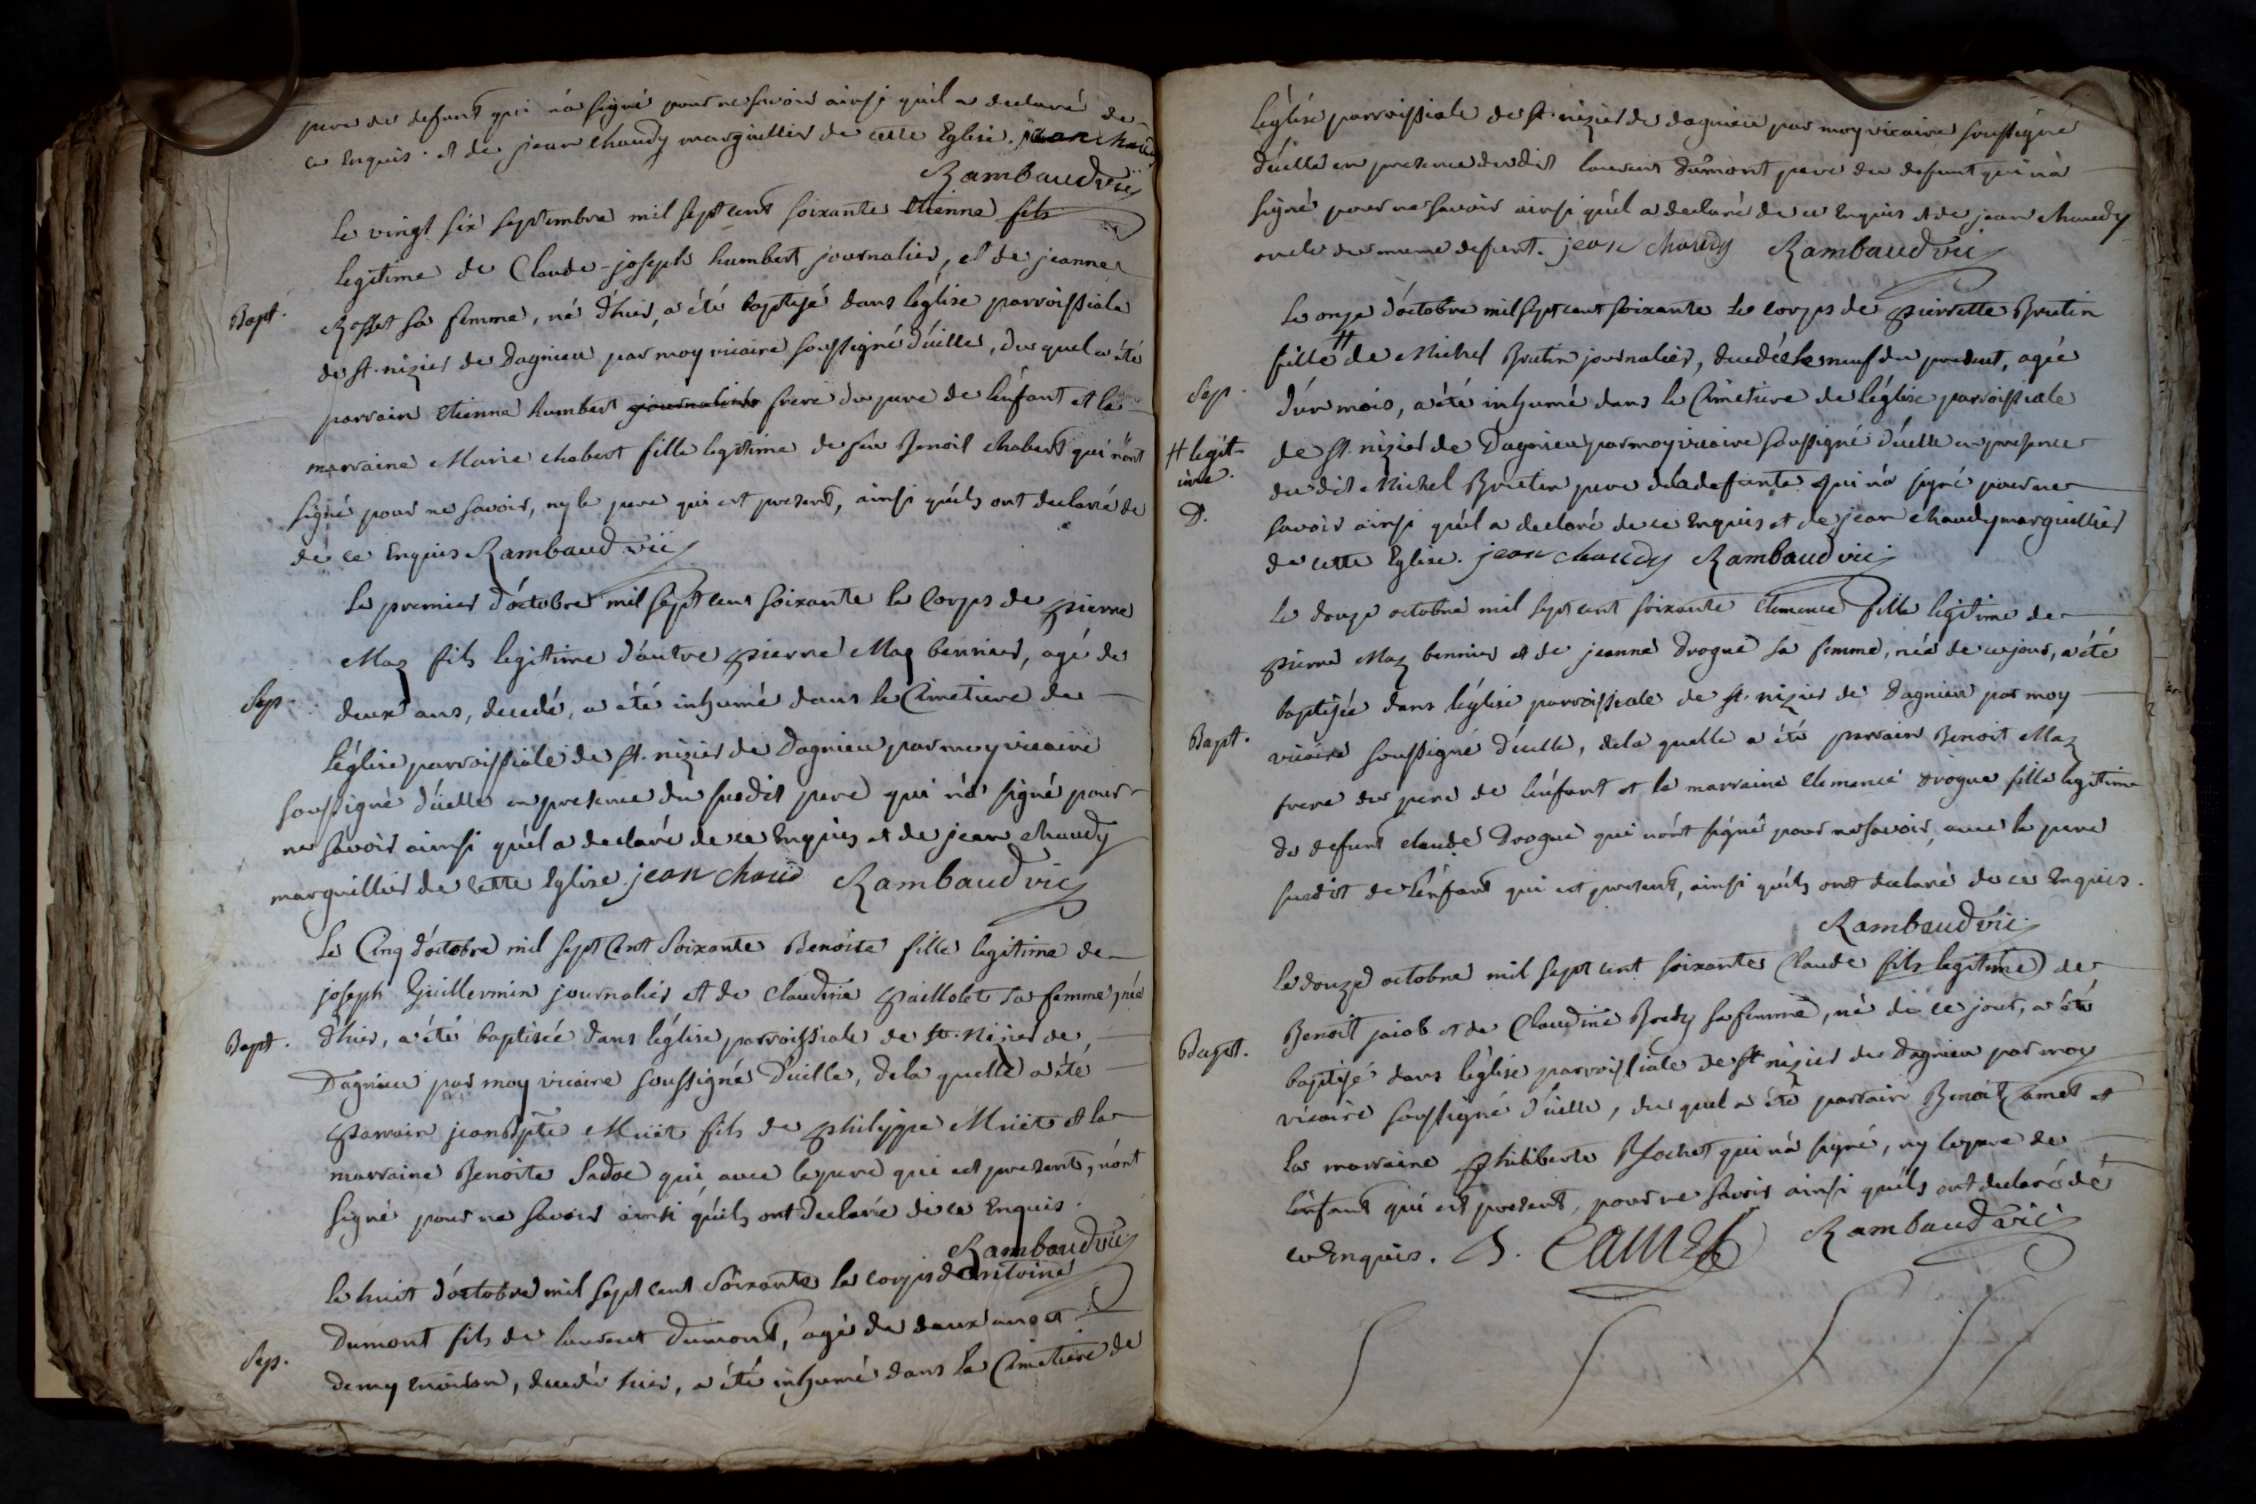 pere du defunt qui n'a signé pour ne savoir ainsi qu'il a declaré de
ce Enquis. et de jean chaudy marguillier de cette Eglise. jean chaudy
Rambaud vic
Le vingt six septembre mil sept cent soixante etienne fils
legitime de Claude-joseph humbert journalier, et de jeanne
Bapt. Rosset sa femme, né d'hier, a été baptisé dans l'église parroissiale
de st. nizier de Dagnieu par moy vicaire soussigné d'icelle, du quel a été
parrain etienne humbert journalier frere du pere de l'enfant et la
marraine Marie chabert fille legitime de feu Benoit chabert qui n'ont
signé pour ne savoir, ny le pere qui est present, ainsi qu'ils ont declaré de
de ce Enquis Rambaud vic
Le premier d'octobre mil sept cent soixante le Corps de pierre
Maz fils legitime d'autre pierre Maz bennier, agé de
Sep. deux ans, decedé, a été inhumé dans le Cimetiere de
l'église parroissiale de st. nizier de Dagnieu par moy vicaire
soussigné d'icelle en presence du susdit pere qui n'a signé pour
ne savoir ainsi qu'il a declaré de ce Enquis et de jean chaudy
marguillier de cette Eglise. jean chaud Rambaud vic
Le Cinq d'octobre mil sept Cent Soixante Benoite fille legitime de
joseph Guillermin journalier et de Claudine paillolet sa femme, née
Bapt. d'hier, a été baptisée dans l'église parroissiale de st. Nizier de
Dagnieu par moy vicaire soussigné d'icelle, de la quelle a été
parrain jean bpte Muet fils de philippe Muet et la
marraine Benoite Sadoc qui avec le pere qui est present, n'ont
signé pour ne savoir ainsi qu'ils ont declaré de ce Enquis.
Rambaud vic
Le huit d'octobre mil sept cent Soixante le corps d'antoine
Dumont fils de laurent Dumont, agé de deux ans et
Sep. demy environ, decedé hier, a été inhumé dans le Cimetiere de
l'église parroissiale de st. nizier de dagnieu par moy vicaire soussigné
d'icelle en presence du dit laurent Dumont pere du defunt qui n'a
signé pour ne savoir ainsi qu'il a declaré de ce Enquis et de jean chaudy
oncle du meme defunt. jean chaudy Rambaud vic
Le onze d'octobre mil sept cent soixante Le corps de pierrette Brutin
fille # de Michel Brutin journalier, decedée le neuf du present, agée
Sep. d'un mois, a été inhumé dans le Cimetiere de l'église parroissiale
# legit- de st. nizier de Dagnieu par moy vicaire soussigné d'icelle en presence
ime. du dit Michel Brutin pere de la defunte qui n'a signé pour ne
D. savoir ainsi qu'il a declaré de ce Enquis et de jean chaudy marguillier
de cette Eglise. jean chaudy Rambaud vic
Le douze octobre mil sept cent soixante Clemence fille legitime de
pierre Maz bennier et de jeanne Drogue sa femme, née de ce jour, a été
baptisée dans l'église parroissiale de st. nizier de Dagnieu par moy
Bapt. vicaire soussigné d'icelle, de la quelle a été parrain Benoit Maz
frere du pere de l'enfant et la marraine clemence drogue fille legitime
de defunt claude Drogue qui n'ont signé pour ne savoir, avec le pere
susdit de l'enfant qui est present, ainsi qu'ils ont declaré de ce Enquis.
Rambaud vic
Le douze octobre mil sept cent soixante Claude fils legitime de
Benoit jacob et de Claudine Bredy sa femme, né de ce jour, a été
Bapt. baptisé dans l'église parroissiale de st nizier de Dagnieu par moy
vicaire soussigné d'icelle, du quel a été parrain Benoit Camet et
la marraine philiberte Blochet qui n'a signé, ny le pere de
l'enfant qui est present, pour ne savoir ainsi qu'ils ont declaré de
ce Enquis. B. CAMET Rambaud vic